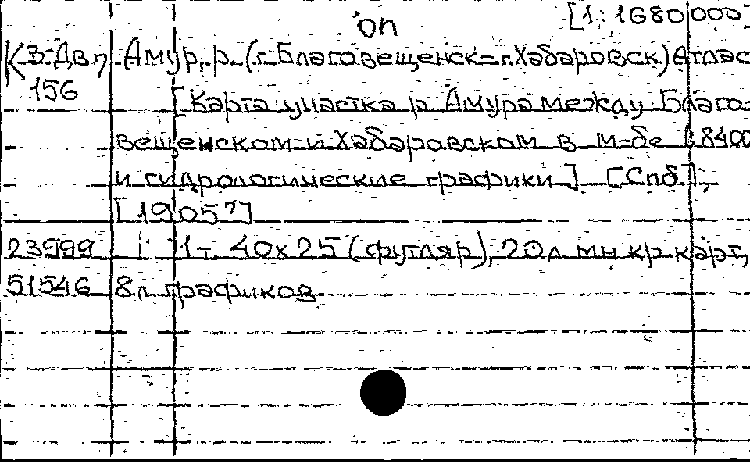 оп [1:1680000]
К 3-Дв. Амур, р. (г. Благовещенск – г. Хабаровск) Атлас
156 [Карта участка р. Амура между Благо-
вещенском и Хабаровском в м-бе 1:8400
и гидрологические графики] [Спб.],
[1905?]
23999 1 т. 40х25 (футляр), 20 л. мн. кр. карт,
51546 8 л. графиков.